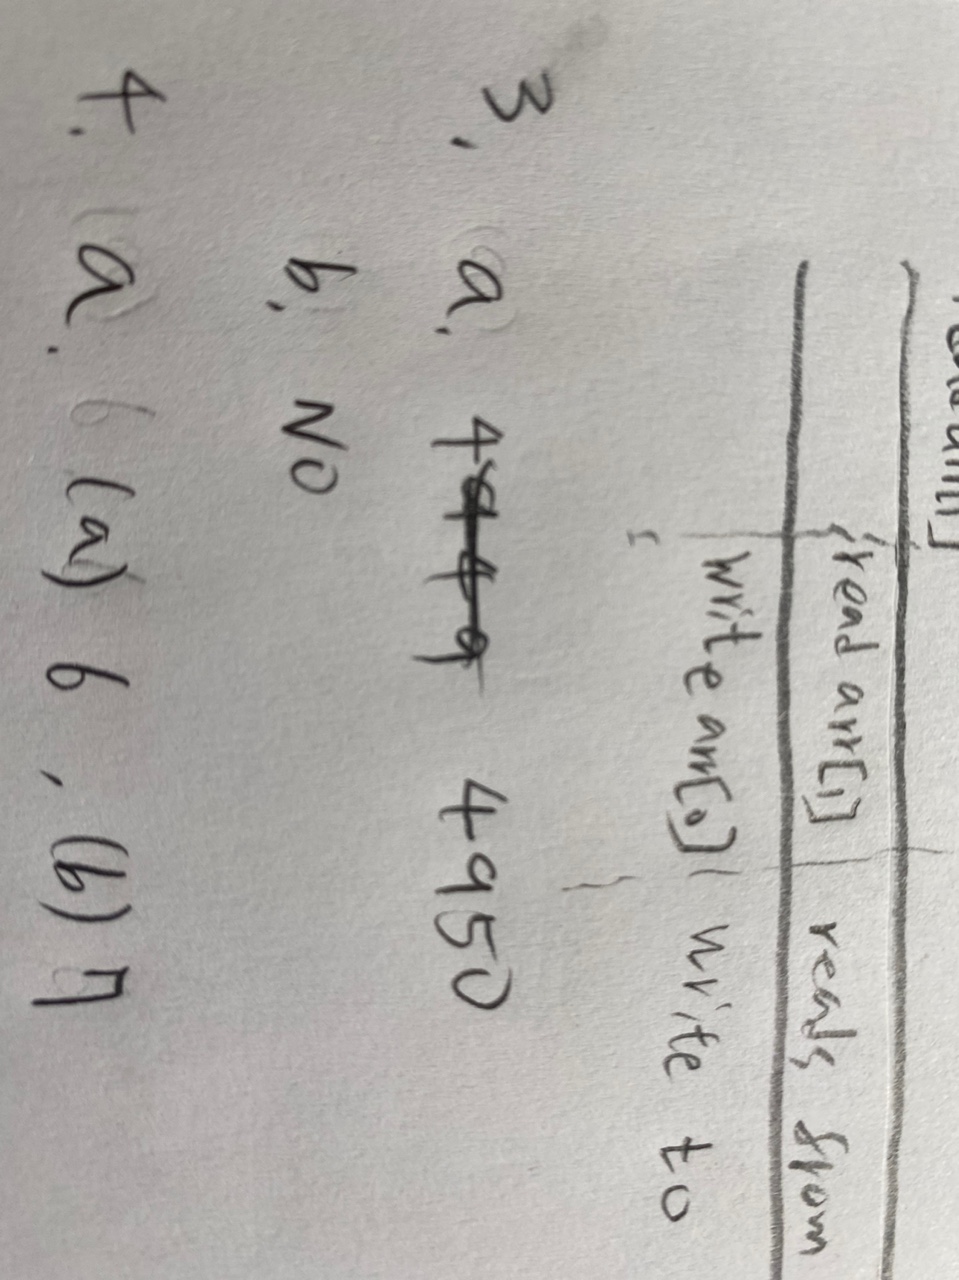 read arr[1] reads from
write arr[0] write to
3. a. 4 4950
b. No
4. a. 6 (a) 6, (b) 7